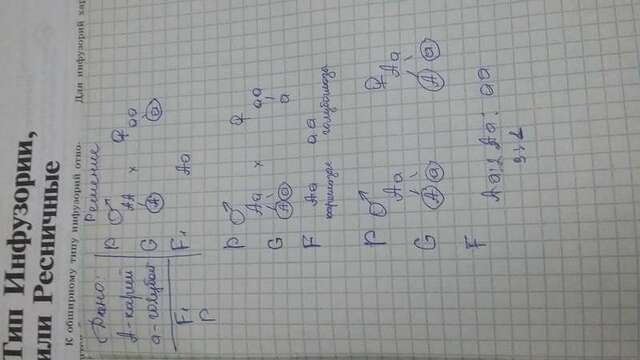 Тип Инфузории,
или Ресничные
К обширному типу инфузорий отно-
Для инфузорий хар
Дано:
А-карий
а-голубой
F₁
P
Решение
P ♂ АА × ♀ аа
G А а
F₁ Аа
P ♂ Аа × ♀ аа
G А а а
F Аа аа
кареглазые голубоглазые
P ♂ Аа ♀ Аа
G А а А а
F Аа : 2 Аа : аа
3:1